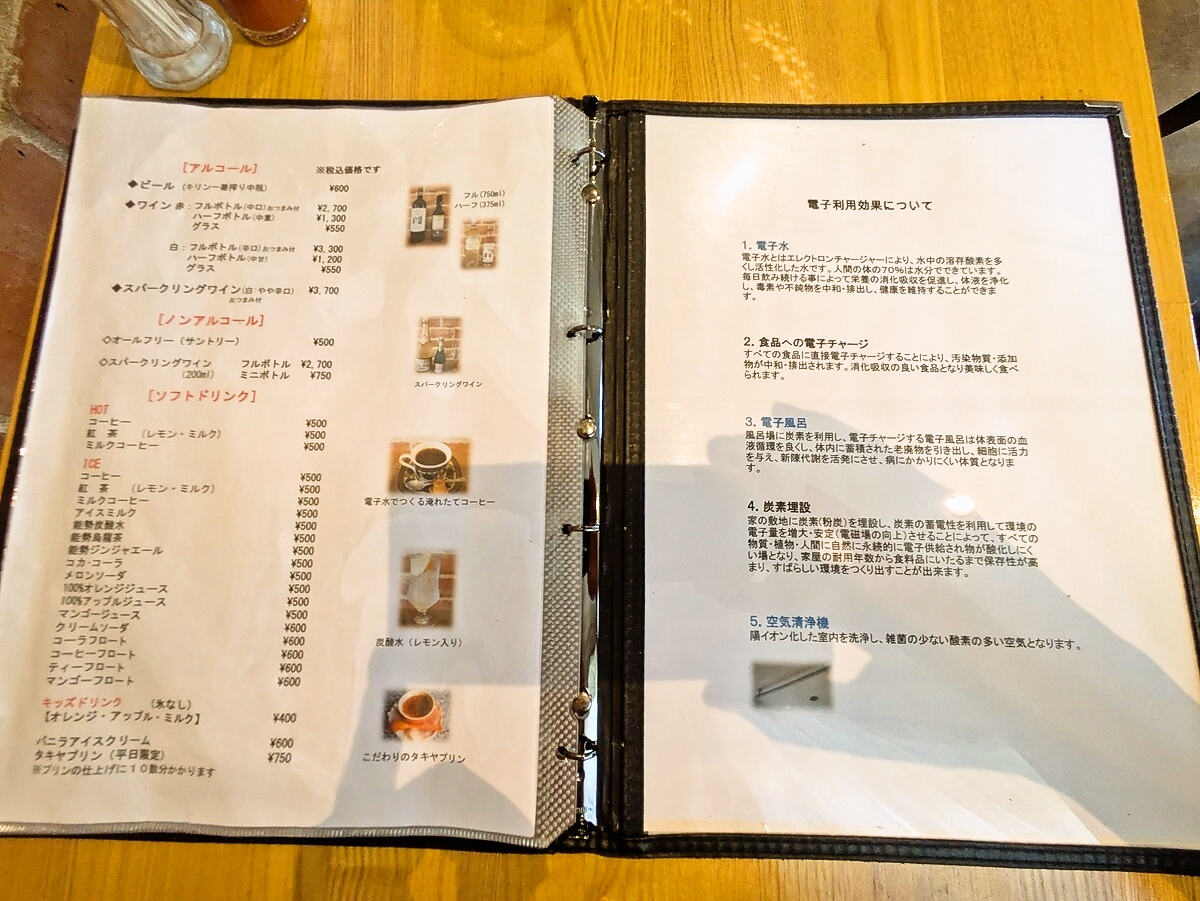 [アルコール]
※税込価格です
◆ビール (キリン一番搾り中瓶) ¥600
◆ワイン 赤：フルボトル(中口)おつまみ付 ¥2,700
ハーフボトル(中重) ¥1,300
グラス ¥550
白：フルボトル(辛口)おつまみ付 ¥3,300
ハーフボトル(中甘) ¥1,200
グラス ¥550
◆スパークリングワイン(白:やや辛口) ¥3,700
おつまみ付
フル(750ml)
ハーフ(375ml)
[ノンアルコール]
◇オールフリー (サントリー) ¥500
◇スパークリングワイン フルボトル ¥2,700
(200ml) ミニボトル ¥750
スパークリングワイン
[ソフトドリンク]
HOT
コーヒー ¥500
紅 茶 (レモン・ミルク) ¥500
ミルクコーヒー ¥500
ICE
コーヒー ¥500
紅 茶 (レモン・ミルク) ¥500
ミルクコーヒー ¥500
アイスミルク ¥500
能勢炭酸水 ¥500
能勢烏龍茶 ¥500
能勢ジンジャエール ¥500
コカ・コーラ ¥500
メロンソーダ ¥500
100%オレンジジュース ¥500
100%アップルジュース ¥500
マンゴージュース ¥500
クリームソーダ ¥600
コーラフロート ¥600
コーヒーフロート ¥600
ティーフロート ¥600
マンゴーフロート ¥600
電子水でつくる淹れたてコーヒー
炭酸水 (レモン入り)
キッズドリンク (氷なし)
【オレンジ・アップル・ミルク】 ¥400
バニラアイスクリーム ¥600
タキヤプリン (平日限定) ¥750
※プリンの仕上げに10数分かかります
こだわりのタキヤプリン
電子利用効果について
1. 電子水
電子水とはエレクトロンチャージャーにより、水中の溶存酸素を多
くし活性化した水です。人間の体の70%は水分でできています。
毎日飲み続ける事によって栄養の消化吸収を促進し、体液を浄化
し、毒素や不純物を中和・排出し、健康を維持することができま
す。
2. 食品への電子チャージ
すべての食品に直接電子チャージすることにより、汚染物質・添加
物が中和・排出されます。消化吸収の良い食品となり美味しく食べ
られます。
3. 電子風呂
風呂場に炭素を利用し、電子チャージする電子風呂は体表面の血
液循環を良くし、体内に蓄積された老廃物を引き出し、細胞に活力
を与え、新陳代謝を活発にさせ、病にかかりにくい体質となりま
す。
4. 炭素埋設
家の敷地に炭素(粉炭)を埋設し、炭素の蓄電性を利用して環境の
電子量を増大・安定(電磁場の向上)させることによって、すべての
物質・植物・人間に自然に永続的に電子供給され物が酸化しにく
い場となり、家屋の耐用年数から食料品にいたるまで保存性が高
まり、すばらしい環境をつくり出すことが出来ます。
5. 空気清浄機
陽イオン化した室内を洗浄し、雑菌の少ない酸素の多い空気となります。